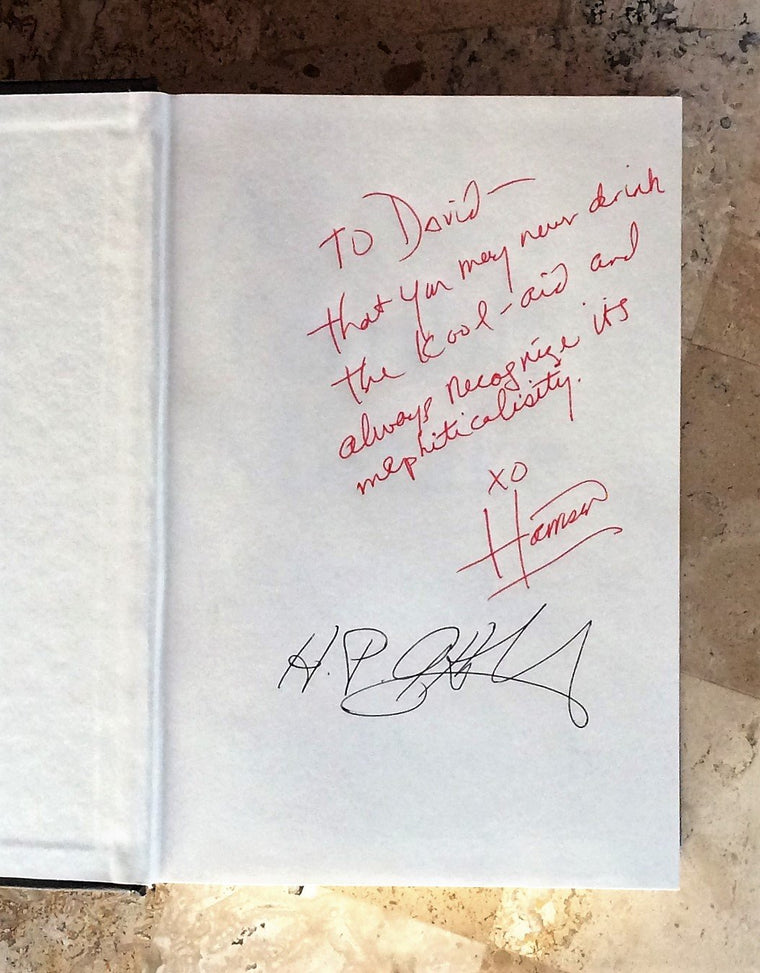 To David—
that you may never drink
the Kool-aid and
always recognize its
mephiticalisity.
XO
H.P.